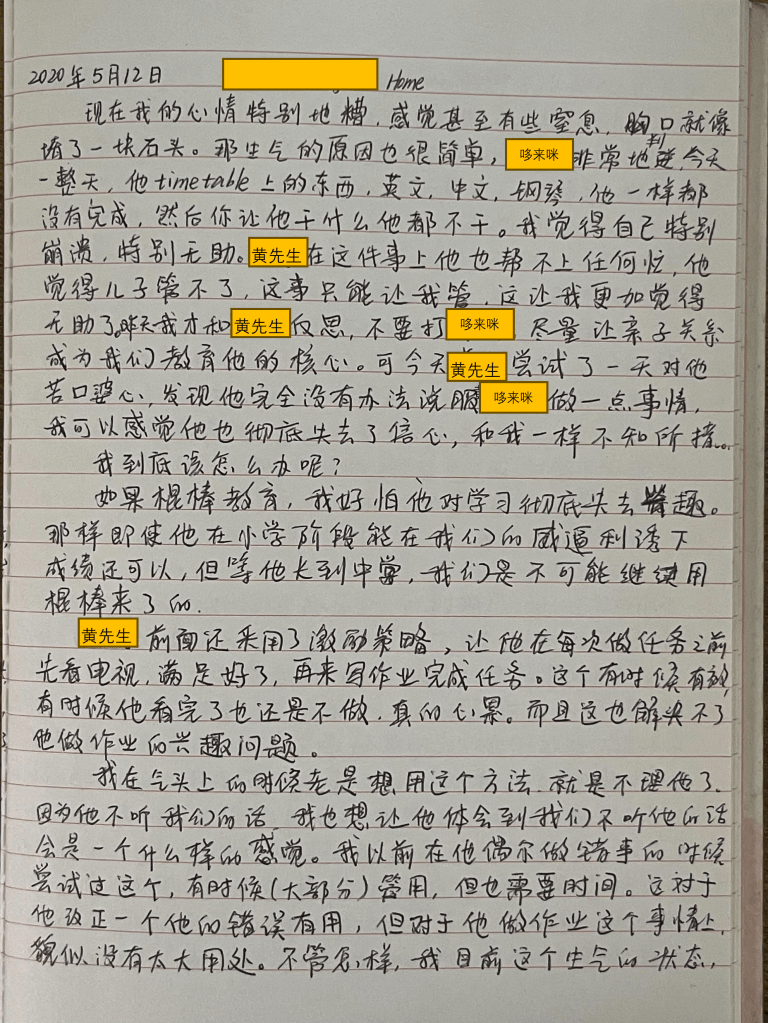 2020年5月12日 Home
现在我的心情特别地糟,感觉甚至有些窒息,胸口就像
堵了一块石头。那生气的原因也很简单,哆来咪非常地逆,今天
一整天,他timetable上的东西,英文,中文,钢琴,他一样都
没有完成,然后你让他干什么他都不干。我觉得自己特别
崩溃,特别无助。黄先生在这件事上他也帮不上任何忙,他
觉得儿子管不了,这事只能让我管,这让我更加觉得
无助了。昨天我才和黄先生反思,不要打哆来咪 尽量让亲子关系
成为我们教育他的核心。可今天黄先生尝试了一天对他
苦口婆心,发现他完全没有办法说服哆来咪做一点事情,
我可以感觉他也彻底失去了信心,和我一样不知所措。
我到底该怎么办呢?
如果棍棒教育,我好怕他对学习彻底失去兴趣。
那样即使他在小学阶段能在我们的威逼利诱下
成绩还可以,但等他长到中学,我们是不可能继续用
棍棒来了的.
黄先生前面还采用了激励策略,让他在每次做任务之前
先看电视,满足好了,再来写作业完成任务。这个有时候有效,
有时候他看完了也还是不做.真的心累。而且这也解决不了
他做作业的兴趣问题。
我在气头上的时候老是想用这个方法.就是不理他了.
因为他不听我们的话,我也想让他体会到我们不听他的话
会是一个什么样的感觉。我以前在他偶尔做错事的时候
尝试过这个,有时候(大部分)管用,但也需要时间。这对于
他改正一个他的错误有用,但对于他做作业这个事情上,
貌似没有太大用处。不管怎样,我目前这个生气的状态,